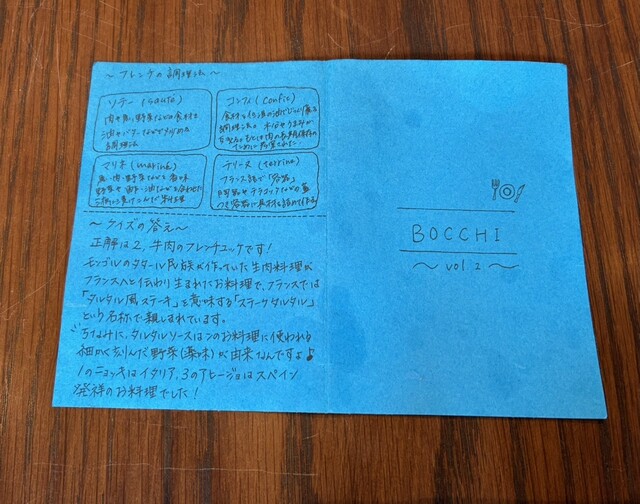 ～フレンチの調理法～
ソテー (sauté)
肉や魚、野菜などの食材を
油やバターなどで炒める
調理法
コンフィ (confit)
食材を低温の油でじっくり煮る
調理法。
ために
マリネ (mariné)
魚・肉・野菜などを香味
野菜や酢・油などを合わせた
漬け込んだ料理
テリーヌ (terrine)
フランス語で「容器」
陶器やテラコッタなどの蓋
つき容器に食材を詰めて
～クイズの答え～
正解は2、牛肉のフレンチユッケです！
モンゴルのタタール民族が作っていた生肉料理が
フランスへと伝わり生まれたお料理で、フランスでは
「タルタル風ステーキ」を意味する「ステークタルタル」
という名称で親しまれています。
ちなみに、タルタルソースはこのお料理に使われる
細かく刻んだ野菜(薬味)が由来なんですよ♪
1のニョッキはイタリア、3のアヒージョはスペイン
発祥のお料理でした！
BOCCHI
～ vol 2 ～